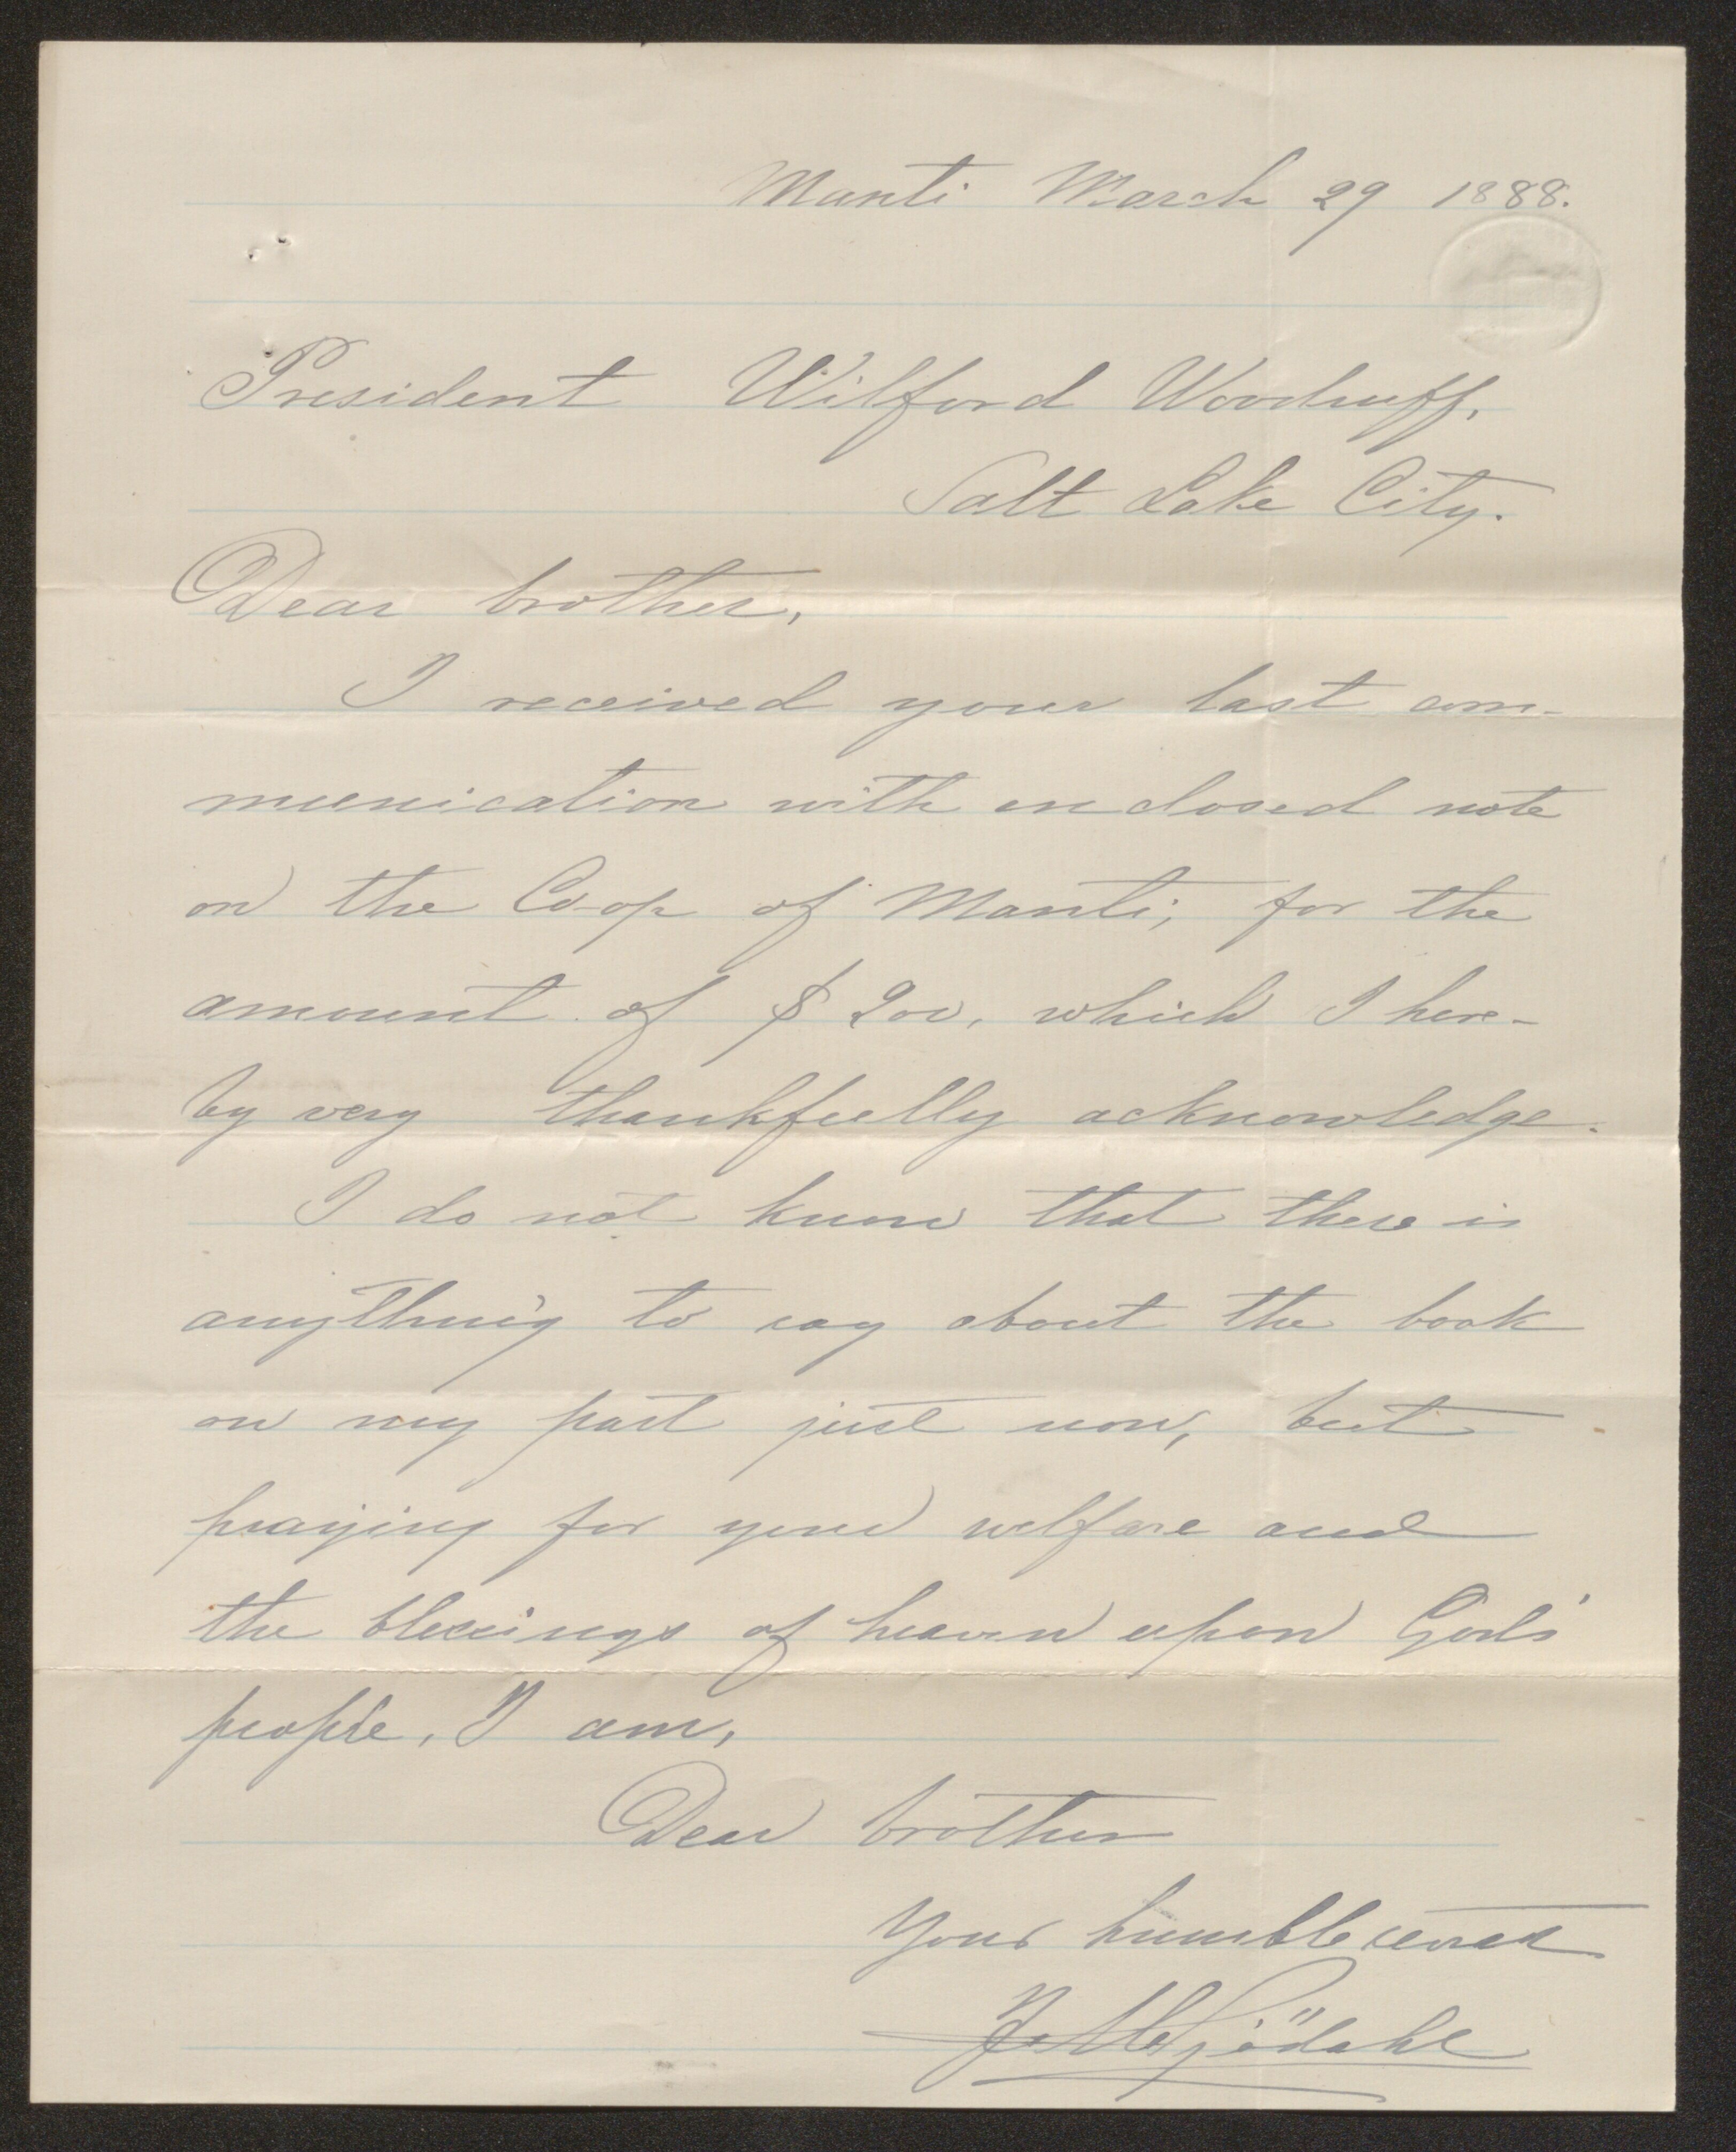 Manti March 29 1888.
President Wilford Woodruff,
Salt Lake City.
Dear brother,
I received your last com-
munication with enclosed note
on the Co-op of Manti, for the
amount of $ 200, which I here-
by very thankfully acknowledge.
I do not know that there is
anything to say about the book
on my part just now, but
praying for your welfare and
the blessings of heaven upon God's
people, I am,
Dear brother
Your humble servant
J. M. Sjödahl